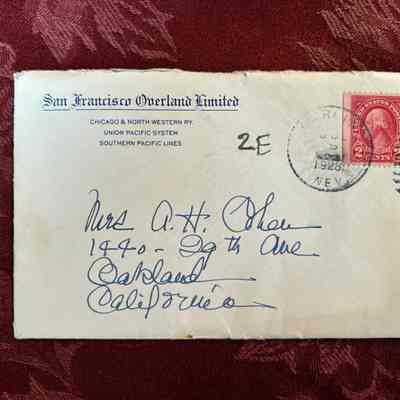 San Francisco Overland Limited
CHICAGO & NORTH WESTERN RY.
UNION PACIFIC SYSTEM
SOUTHERN PACIFIC LINES
2E
1928
NEV.
2 CENTS 2
Mrs A. H. Cohen
1440 - 29th Ave
Oakland
California